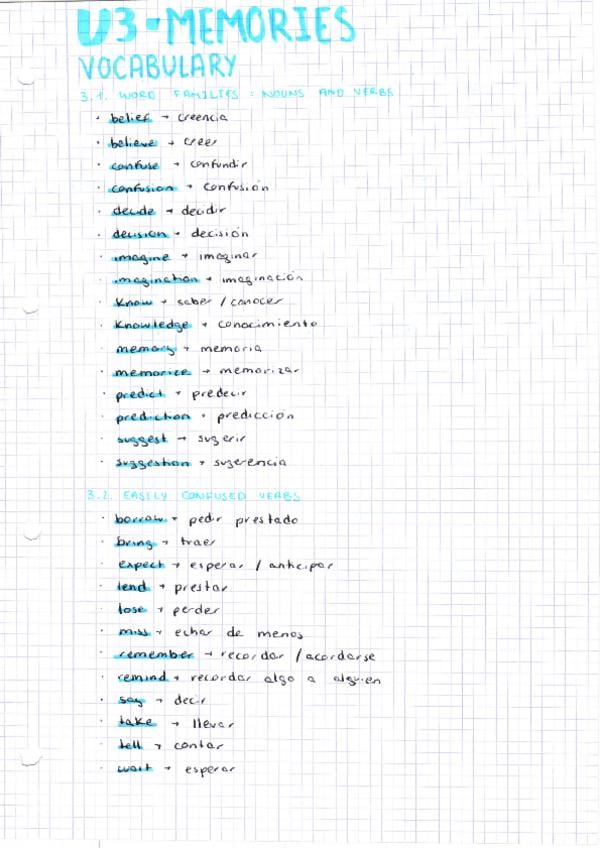 U3·MEMORIES
VOCABULARY
3.1. WORD FAMILIES: NOUNS AND VERBS
· belief → creencia
· believe → creer
· confuse → confundir
· confusion → confusión
· decide → decidir
· decision → decisión
· imagine → imaginar
· imagination → imaginación
· know → saber / conocer
· knowledge → conocimiento
· memory → memoria
· memorize → memorizar
· predict → predecir
· prediction → predicción
· suggest → sugerir
· suggestion → sugerencia
3.2. EASILY CONFUSED VERBS
· borrow → pedir prestado
· bring → traer
· expect → esperar / anticipar
· lend → prestar
· lose → perder
· miss → echar de menos
· remember → recordar / acordarse
· remind → recordar algo a alguien
· say → decir
· take → llevar
· tell → contar
· wait → esperar